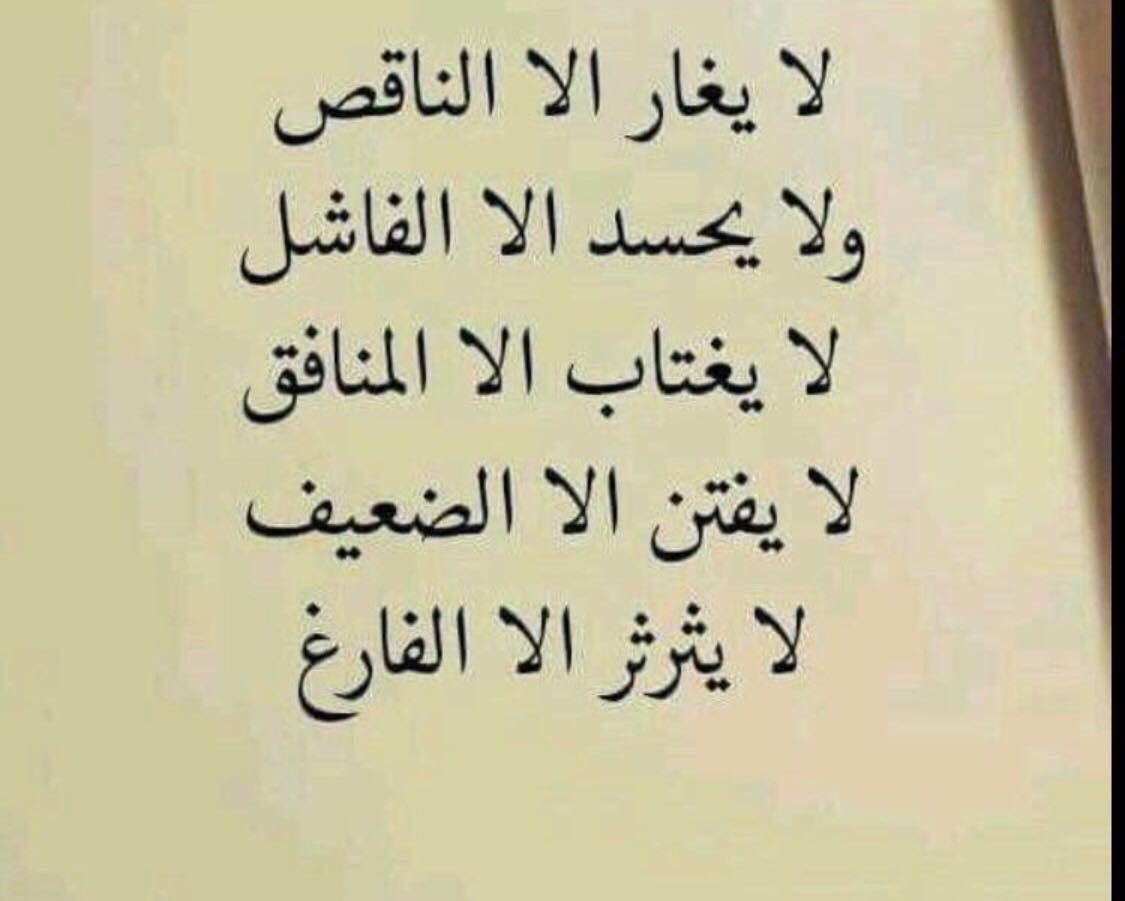 لا يغار الا الناقص
ولا يحسد الا الفاشل
لا يغتاب الا المنافق
لا يفتن الا الضعيف
لا يثرثر الا الفارغ